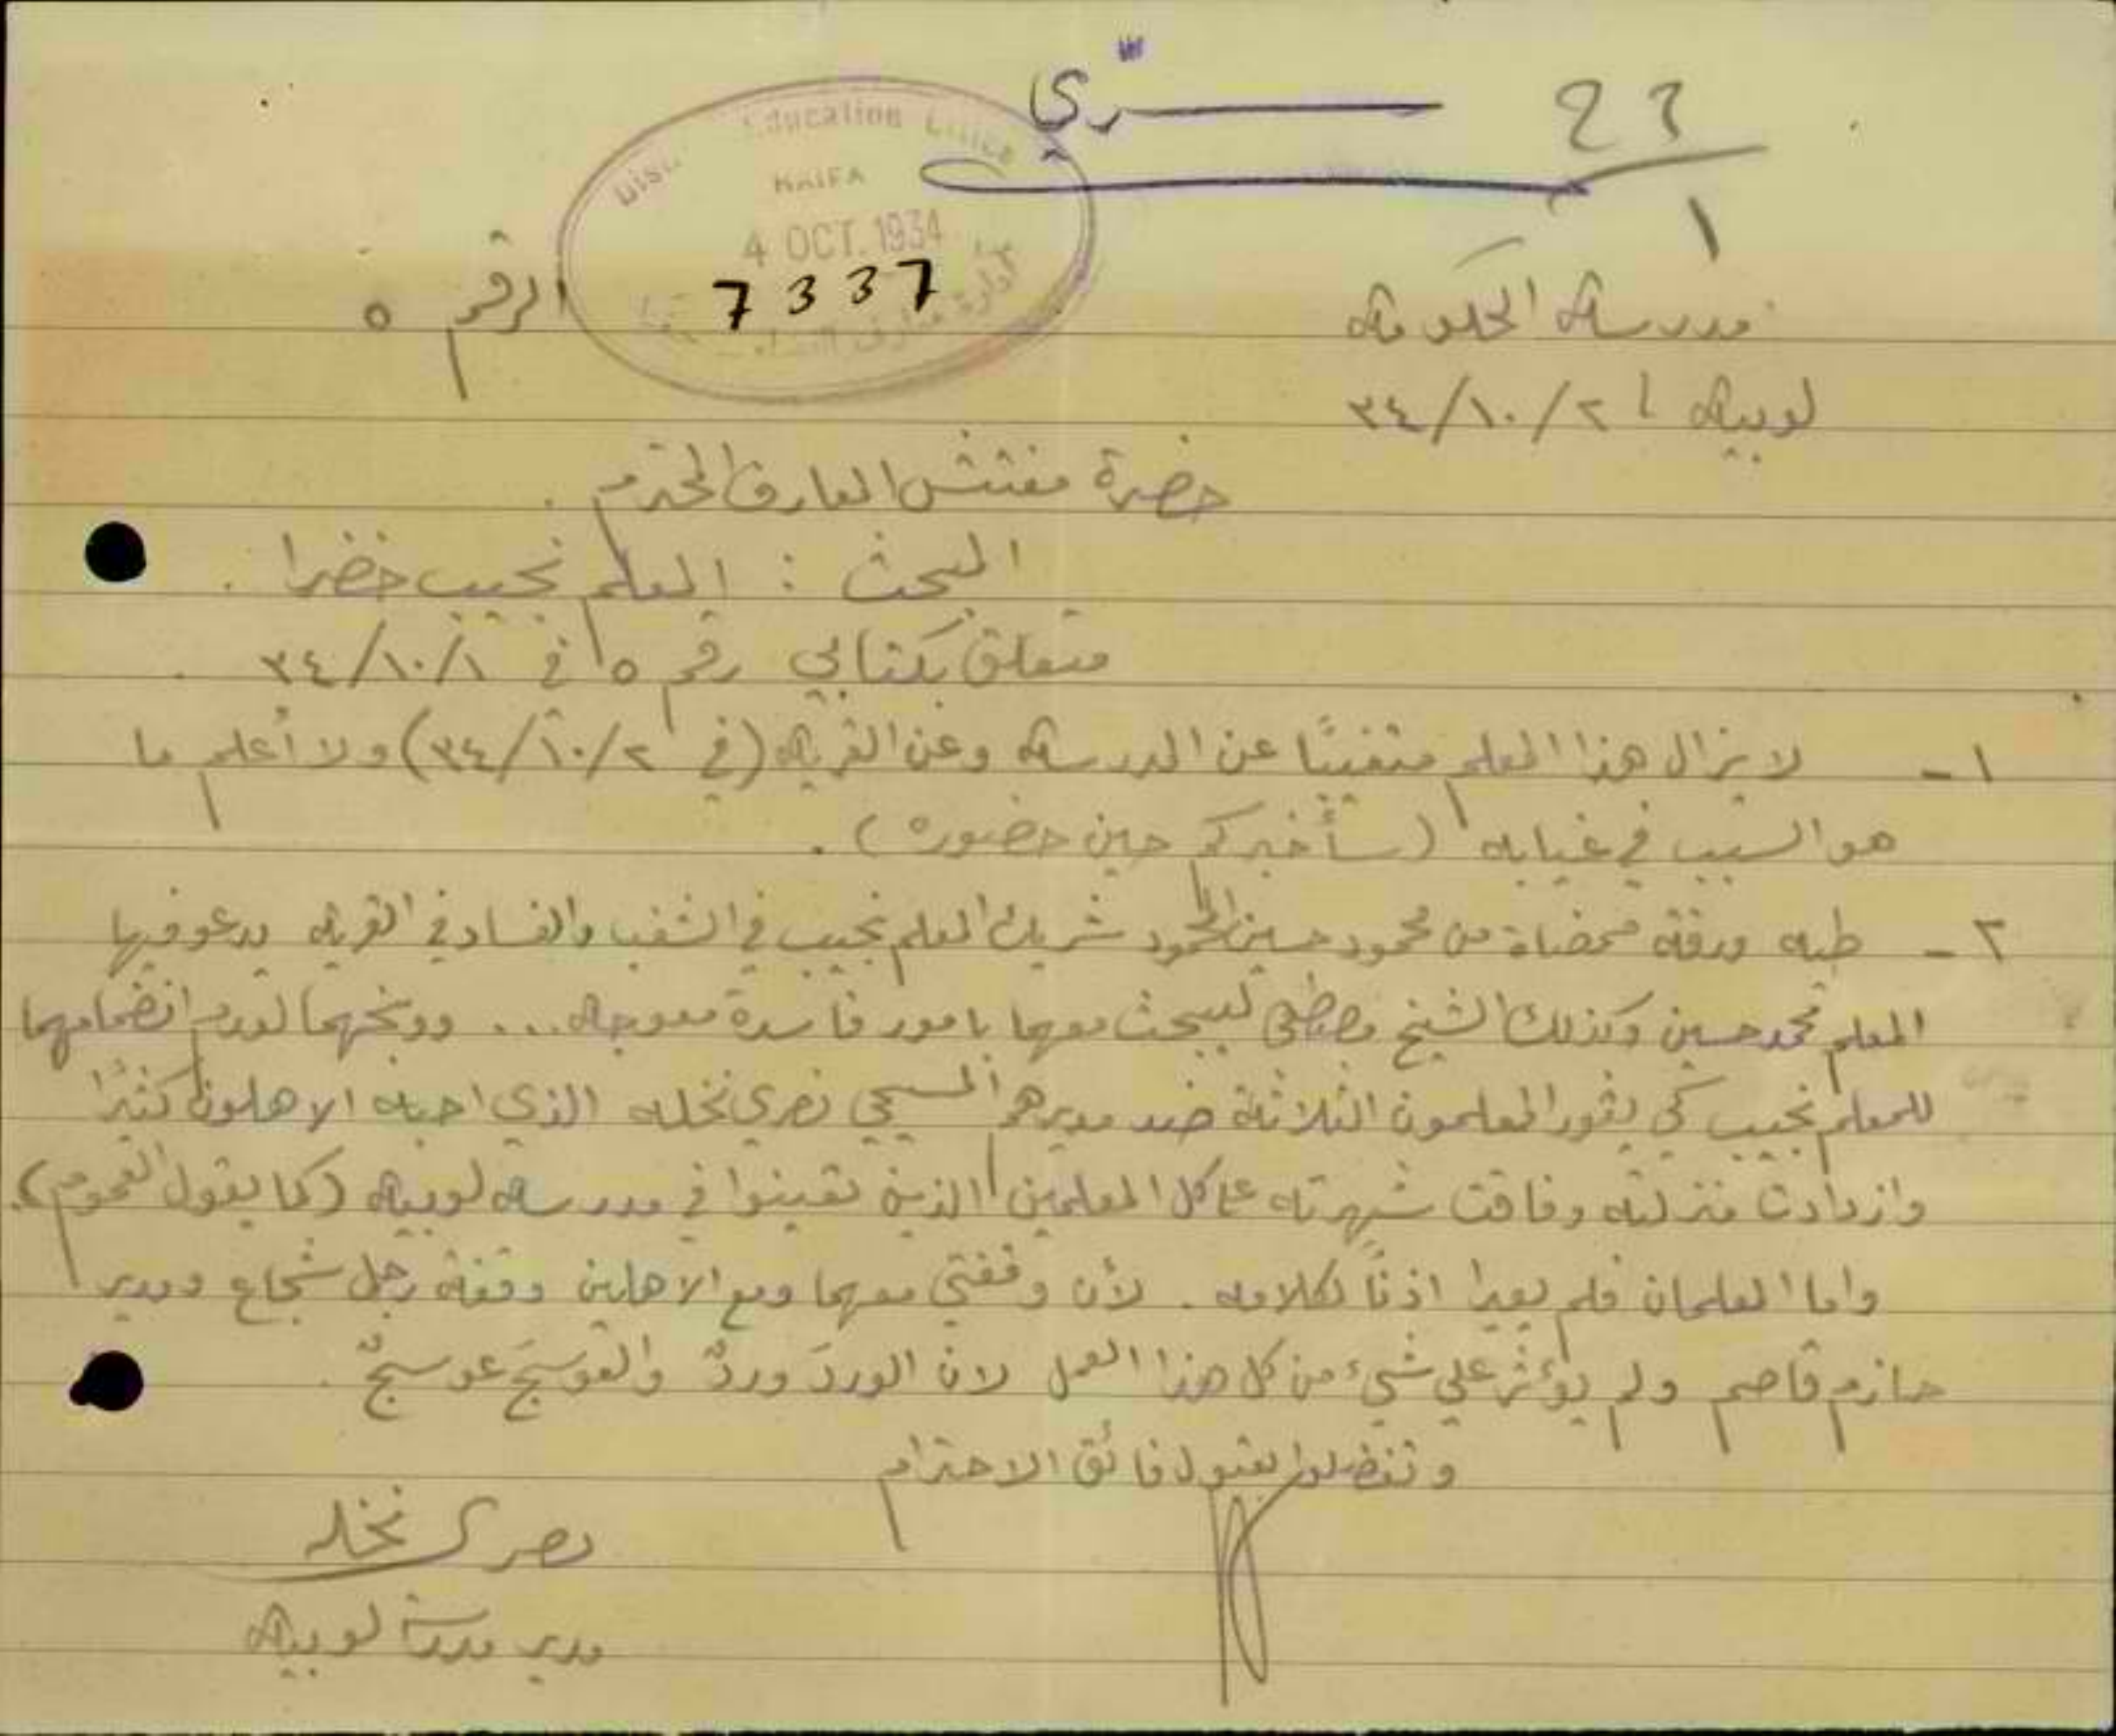 سرّي
23
١
District Education Office
HAIFA
4 OCT. 1934
7337
مدرسة الحكومة
الرقم ٥
لوبيه ٢/١٠/٣٤
حضرة مفتش المعارف المحترم .
البحث : المعلم نجيب خضرا .
متعلق بكتابي رقم ٥ في ١/١٠/٣٤ .
١ - لا يزال هذا المعلم متغيبًا عن المدرسة وعن القرية (في ٢/١٠/٣٤) ولا أعلم ما
هو السبب في غيابه (سأخبركم حين حضوره) .
٢ - طيه ورقة ممضاة من محمود حسين المحمود شريك المعلم نجيب في الشغب والفساد في القرية يدعو فيها
المعلم محمد حسين وكذلك الشيخ مصطفى ليبحث معهما بامور فاسدة معوجه ... ووبخهما لعدم انضمامهما
للمعلم نجيب كي يثور المعلمون الثلاثة ضد مديرهم المسيحي نصري نخله الذي احبه الاهلون كثيرًا
وازدادت منزلته وفاقت شهرته على كل المعلمين الذين تعينوا في مدرسة لوبيه (كما يقول العموم).
واما المعلمان فلم يعيرا اذنًا لكلامه . لأن وقفتي معهما ومع الاهلين وقفة رجل شجاع ومدير
حازم قاصم ولم يؤثر علي شيء من كل هذا العمل لان الوردَ وردٌ والعوسجَ عوسجٌ .
وتفضلوا بقبول فائق الاحترام
نصري نخله
مدير مدرسة لوبيه